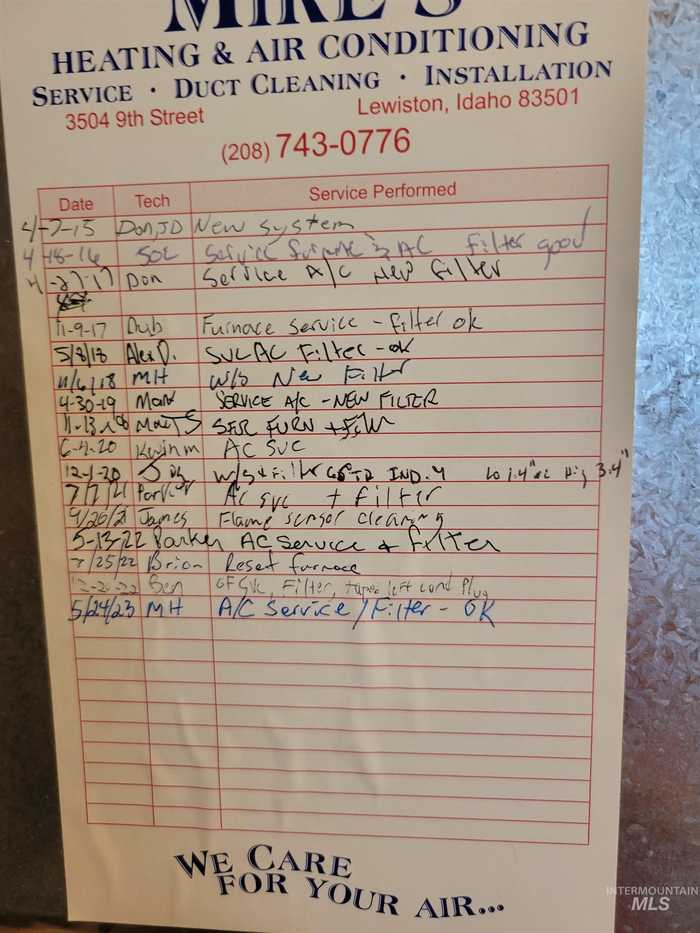 MIKE'S
HEATING & AIR CONDITIONING
SERVICE · DUCT CLEANING · INSTALLATION
3504 9th Street Lewiston, Idaho 83501
(208) 743-0776
Date Tech Service Performed
4-7-15 Don, JD New System
4-18-16 Service furnace & AC filter good
4-27-17 Don Service A/C New Filter
11-9-17 Dub Furnace service - filter ok
5/8/18 Alex D. SVC AC Filter - ok
11/6/18 MH W/S New Filter
4-30-19 Mark SERVICE A/C - NEW FILTER
SER FURN + Filter
6-4-20 AC SVC
12-1-20 W/S + Filter IND. 4 Lo 1.4" Hi 3.4"
7/7/21 Parker AC svc + filter
9/26/21 James Flame sensor cleaning
5-13-22 Parker AC Service + filter
7/25/22 Brian Reset furnace
12-20-22 Ben GF SVC, Filter, taped left cond plug
5/24/23 MH A/C Service / Filter - OK
WE CARE
FOR YOUR AIR...
INTERMOUNTAIN
MLS